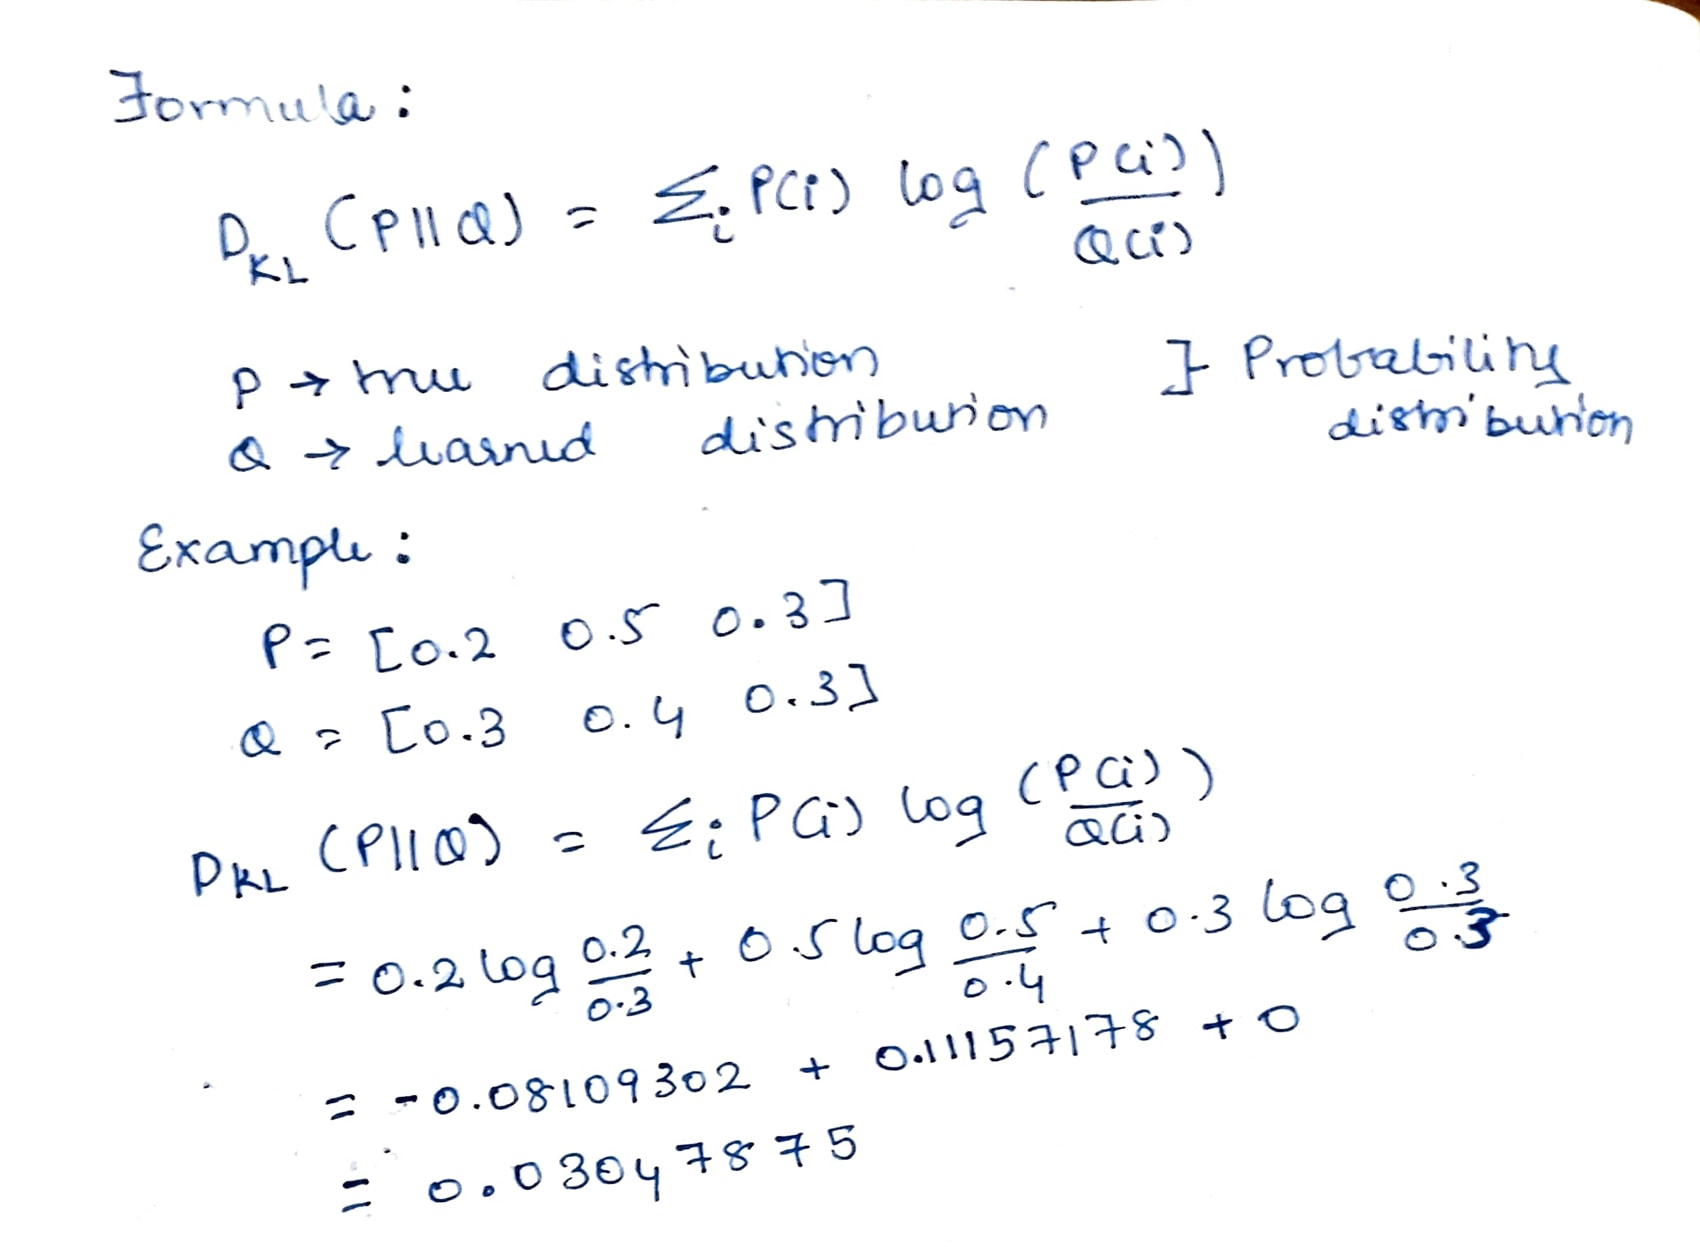 Formula :
D_KL (P||Q) = Σ_i P(i) log (P(i)/Q(i))
P → true distribution } Probability
Q → learned distribution distribution
Example :
P = [0.2 0.5 0.3]
Q = [0.3 0.4 0.3]
D_KL (P||Q) = Σ_i P(i) log (P(i)/Q(i))
= 0.2 log 0.2/0.3 + 0.5 log 0.5/0.4 + 0.3 log 0.3/0.3
= -0.08109302 + 0.11157178 + 0
= 0.03047875